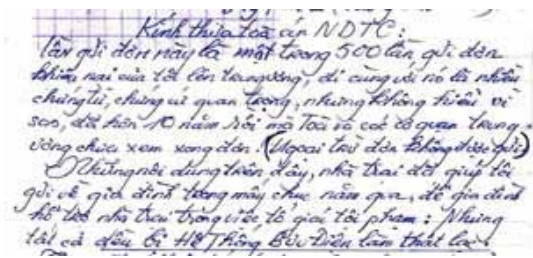 Kính thưa toà án NDTC:
lần gửi đơn này là một trong 500 lần, gửi đơn
khiếu nại của tôi lên trung ương, đi cùng với nó là nhiều
chứng từ, chứng cứ quan trọng, nhưng không hiểu vì
sao, đã hơn 10 năm rồi mà Toà và các cơ quan trung
ương chưa xem xong đơn. (Ngoại trừ đơn không được gửi)
Những nội dung trên đây, nhà trại đã giúp tôi
gửi về gia đình trong mấy chục năm qua, để gia đình
hỗ trợ nhà trại trong việc tố giác tội phạm: Nhưng
tất cả đều bị Hệ Thống Bưu Điện làm thất lạc.